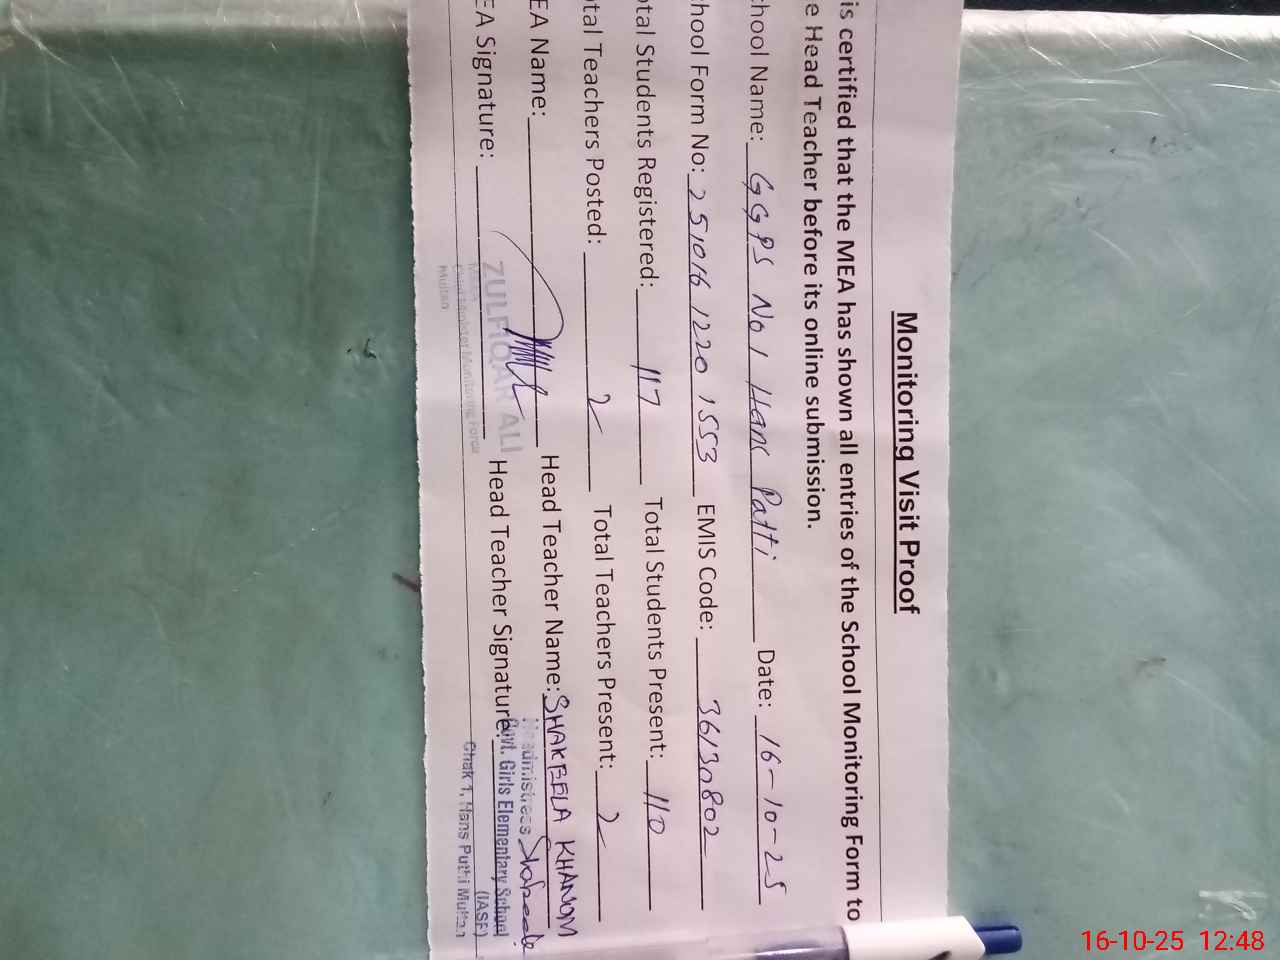 Monitoring Visit Proof
is certified that the MEA has shown all entries of the School Monitoring Form to
e Head Teacher before its online submission.
chool Name: GGPS No 1 Hans Patti Date: 16-10-25
chool Form No: 251016 1220 1553 EMIS Code: 36130802
otal Students Registered: 117 Total Students Present: 110
otal Teachers Posted: 2 Total Teachers Present: 2
EA Name: Head Teacher Name: SHAKEELA KHANOM
EA Signature: Head Teacher Signature:
ZULFIQAR ALI
MEA
Chief Minister Monitoring Force
Multan
Headmistress Shakeela
Govt. Girls Elementary School
(IASE)
Chak 1, Hans Puthi Multan
16-10-25 12:48